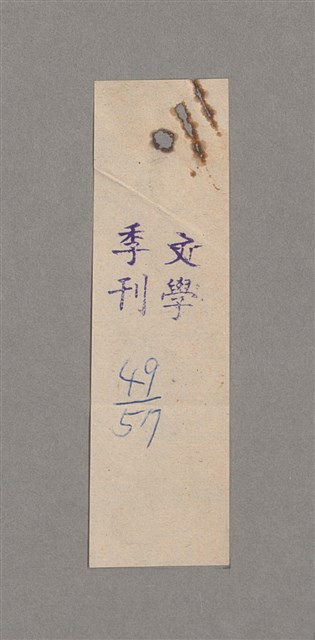 文學
季刊
49
57